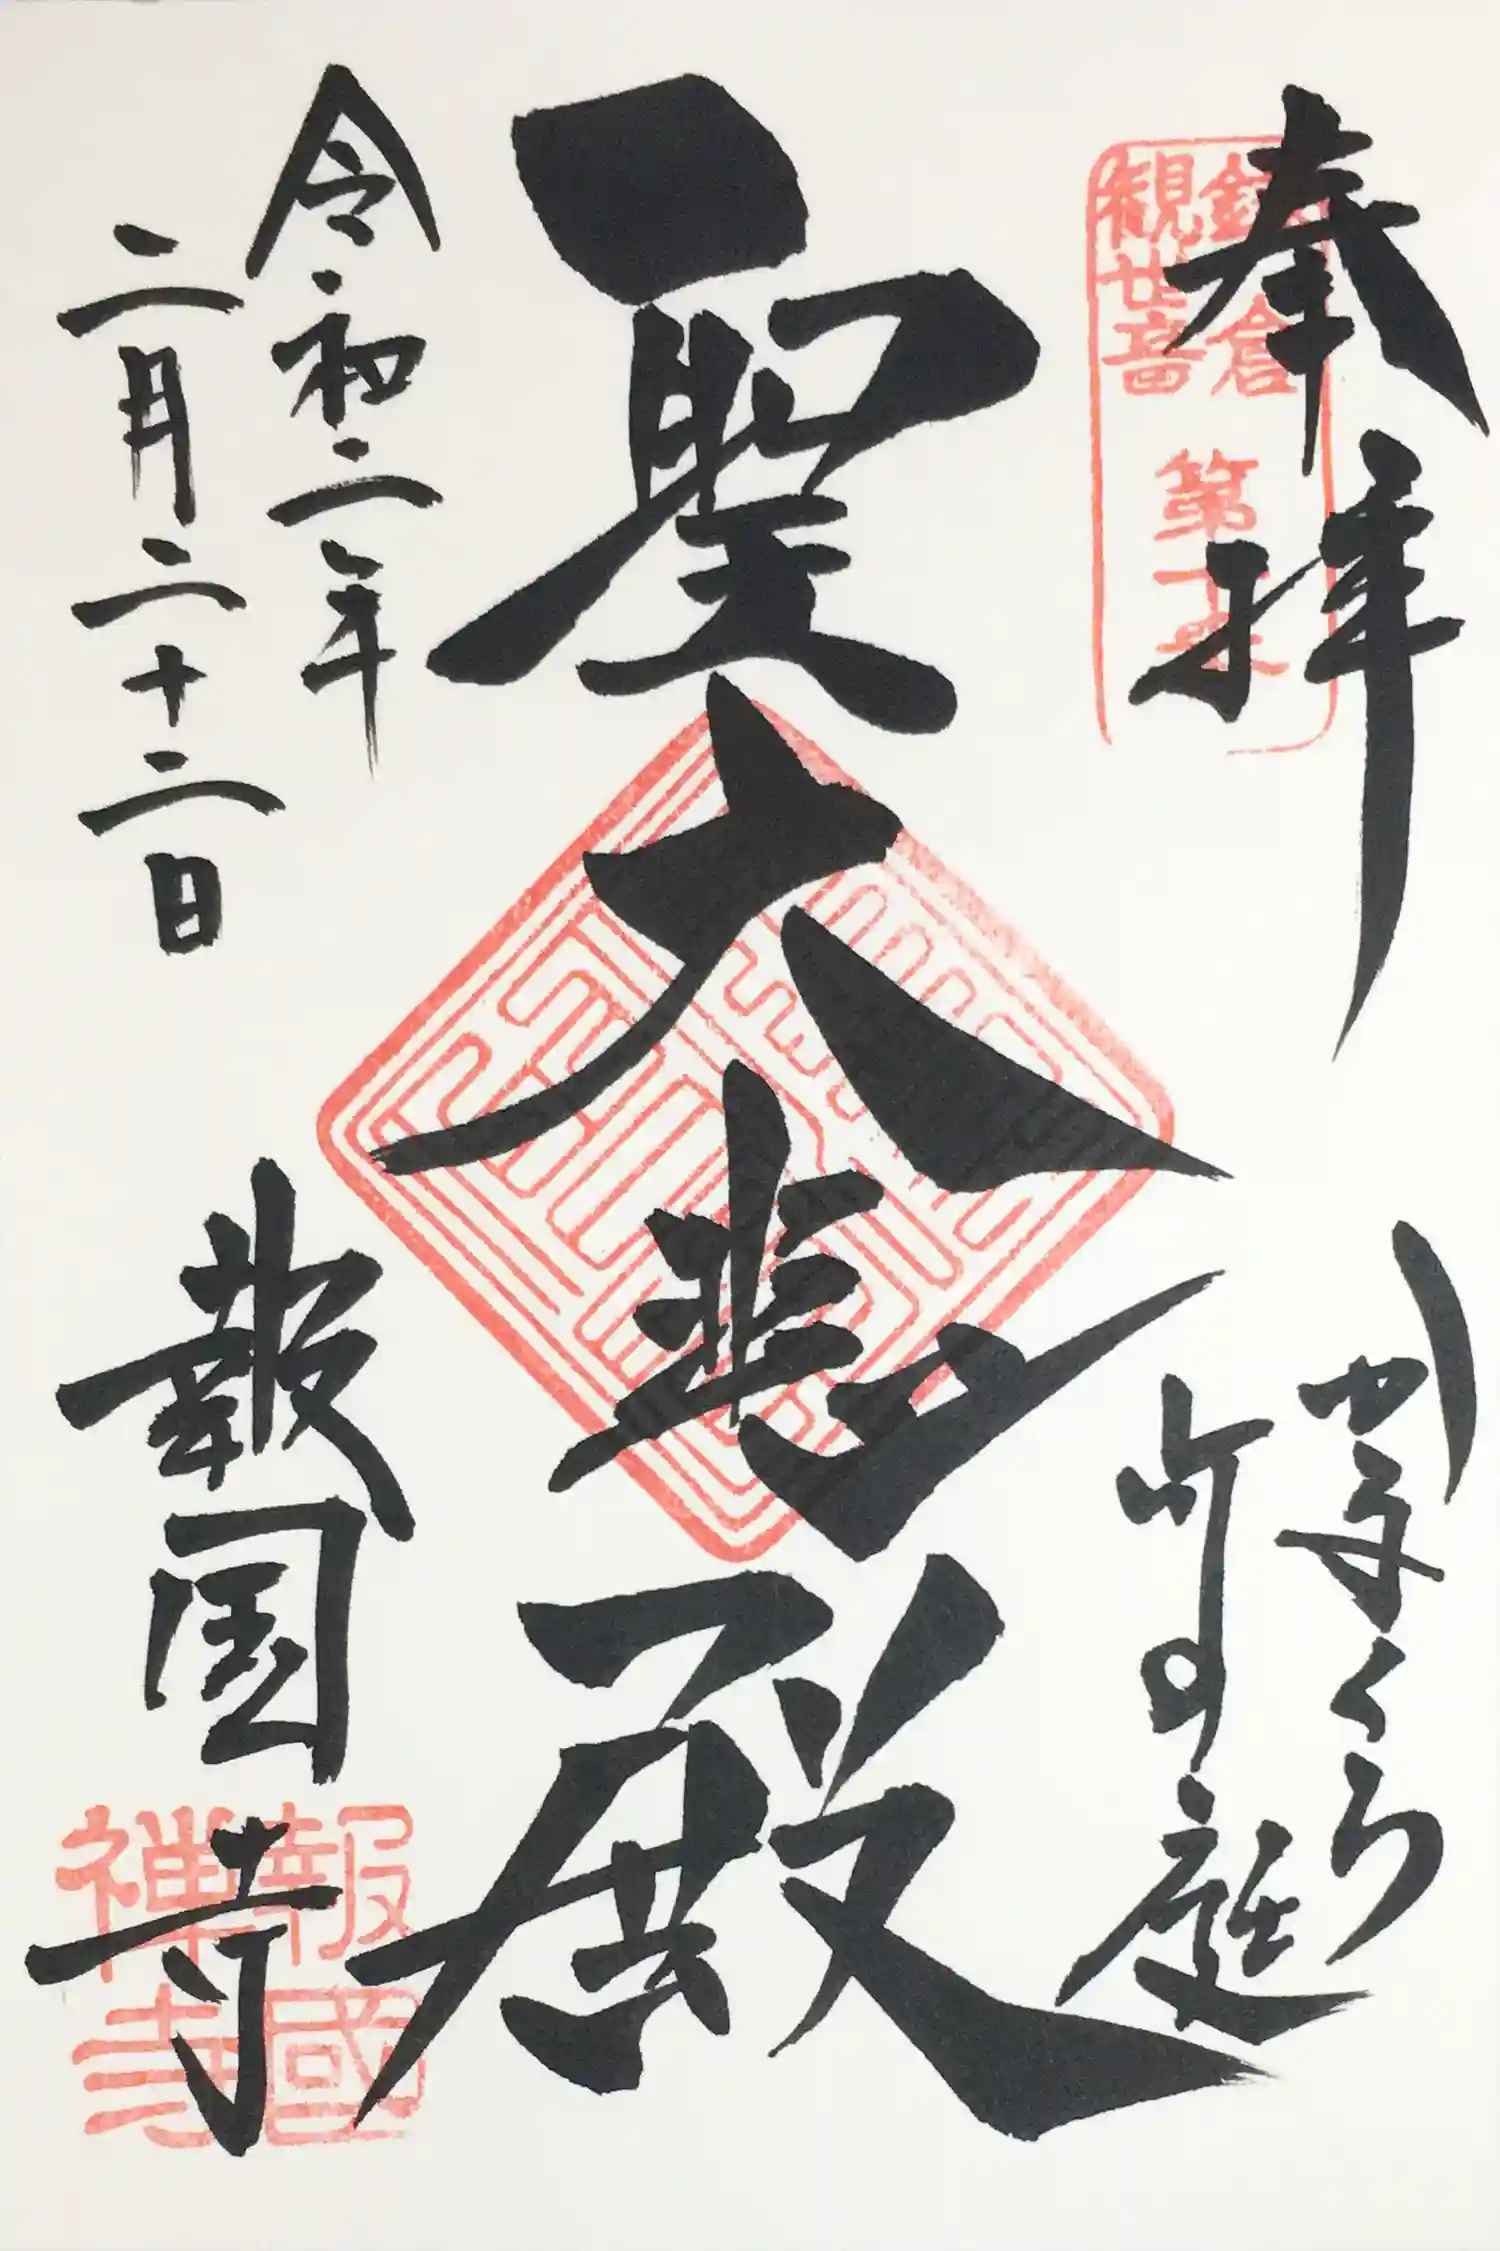 奉拝
かまくら
竹の庭
聖大悲殿
令和二年
二月二十二日
報国寺
鎌倉
観世音
第十番
報國
禅寺